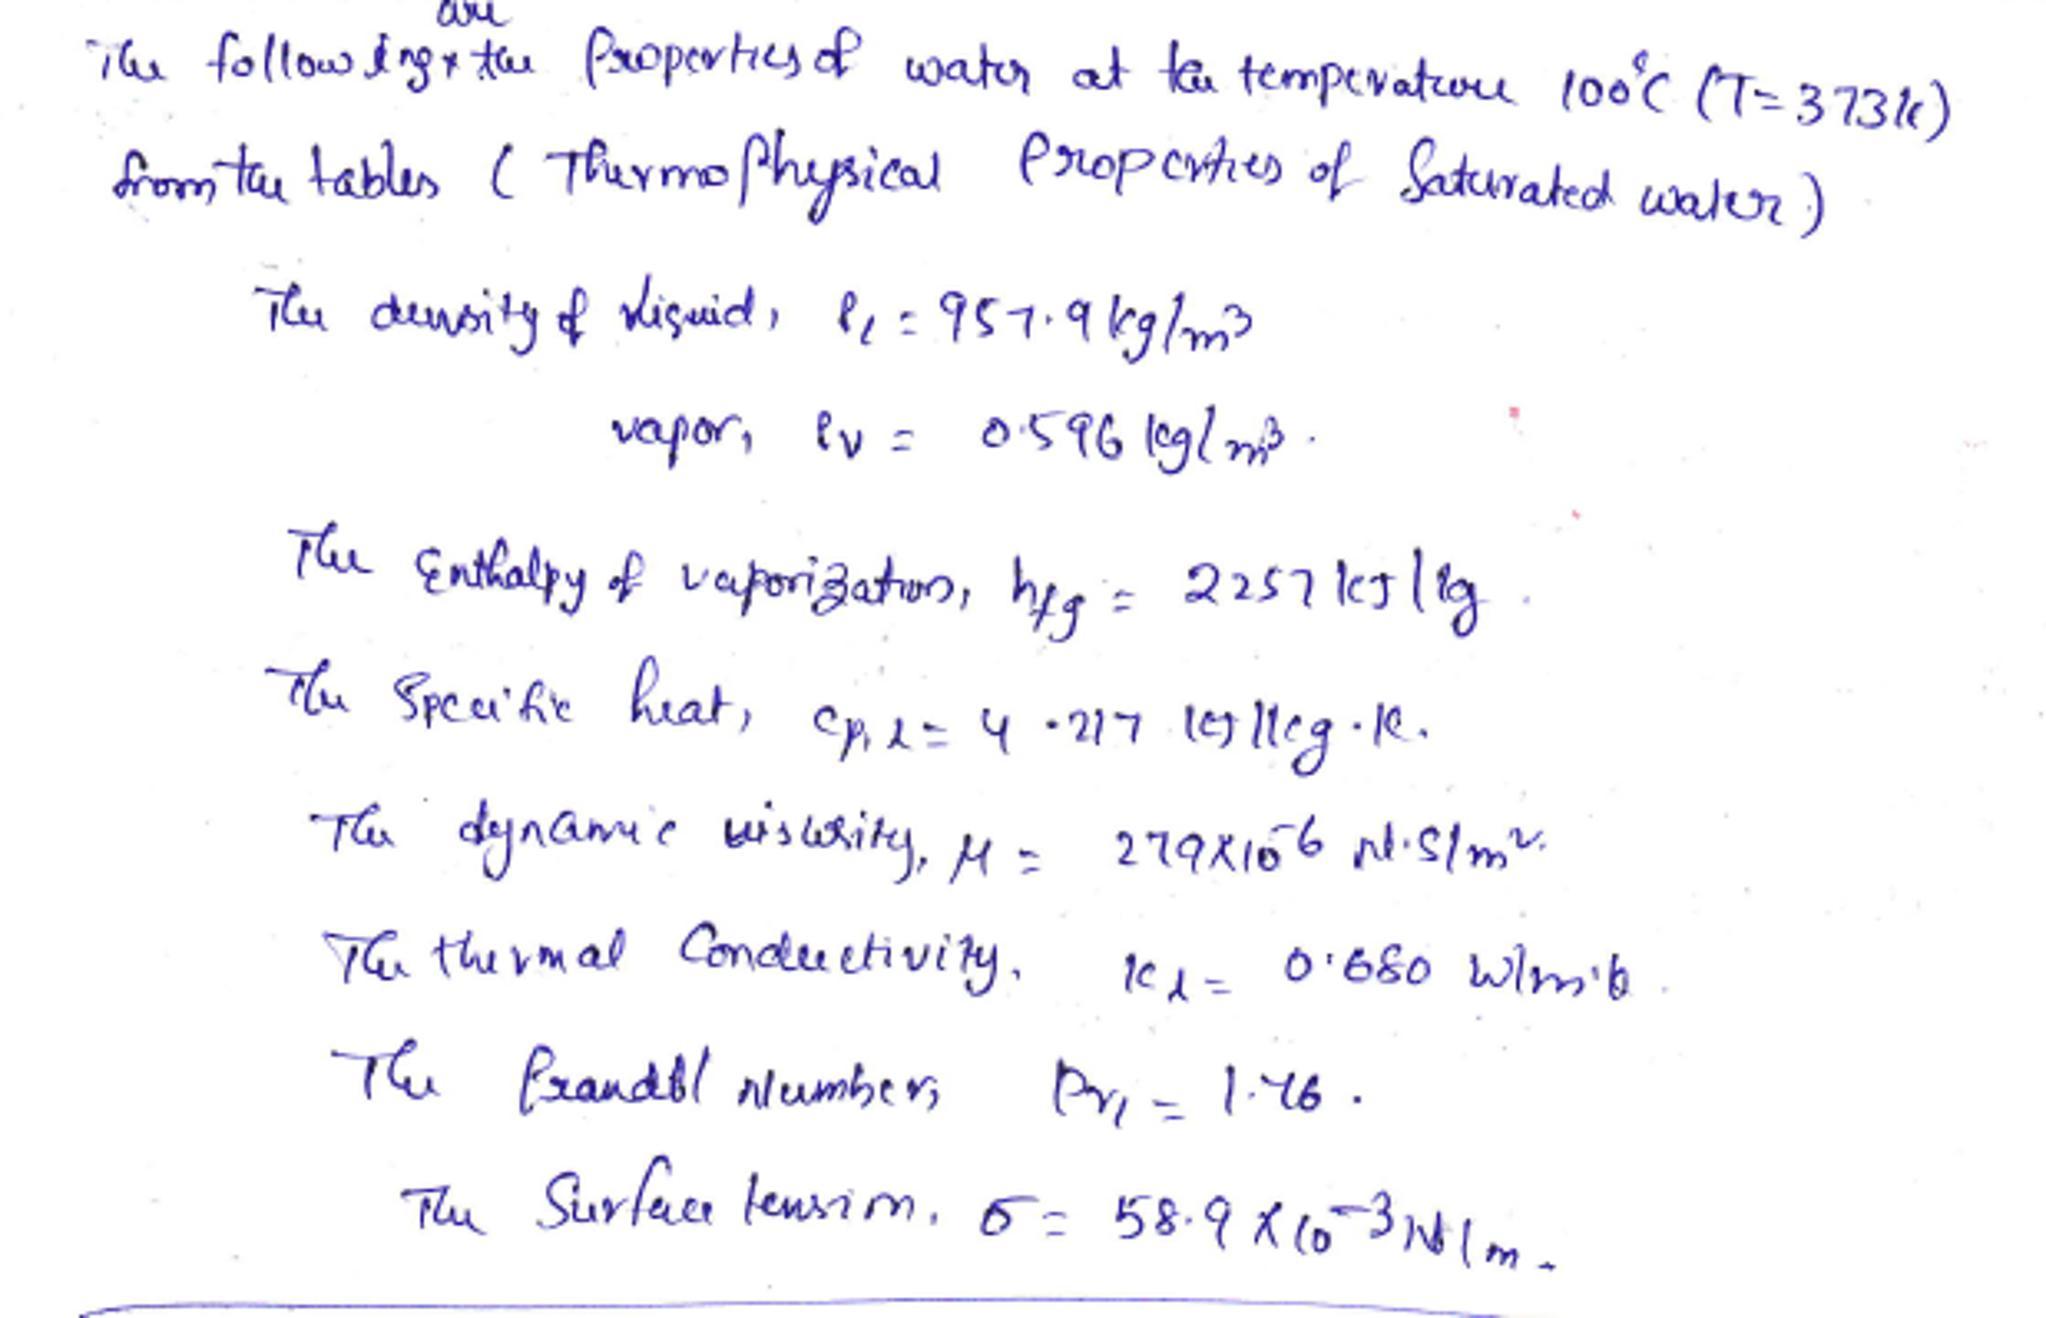 are
The following x the properties of water at the temperature 100°C (T=373K)
from the tables ( Thermophysical Properties of Saturated water)
The density of liquid, ρl = 957.9 kg/m³
vapor, ρv = 0.596 kg/m³.
The Enthalpy of vaporization, hfg = 2257 kJ/kg.
The Specific heat, cp,l = 4.217 kJ/kg.K.
The dynamic viscosity, μ = 279×10⁻⁶ N.S/m².
The thermal Conductivity, kl = 0.680 W/m.k.
The Prandtl Number, Prl = 1.76.
The Surface tension, σ = 58.9 × 10⁻³ N/m.